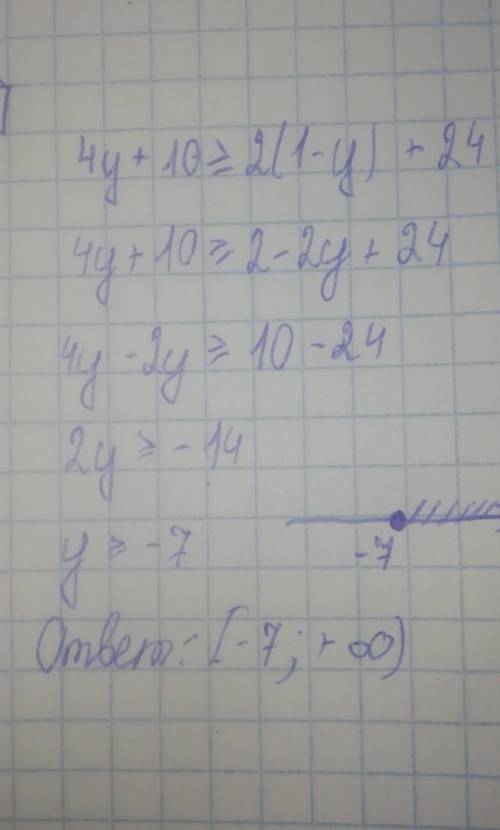 4y + 10 ≥ 2(1-y) + 24
4y + 10 ≥ 2 - 2y + 24
4y - 2y ≥ 10 - 24
2y ≥ - 14
y ≥ -7
-7
Ответ: [-7; + ∞)